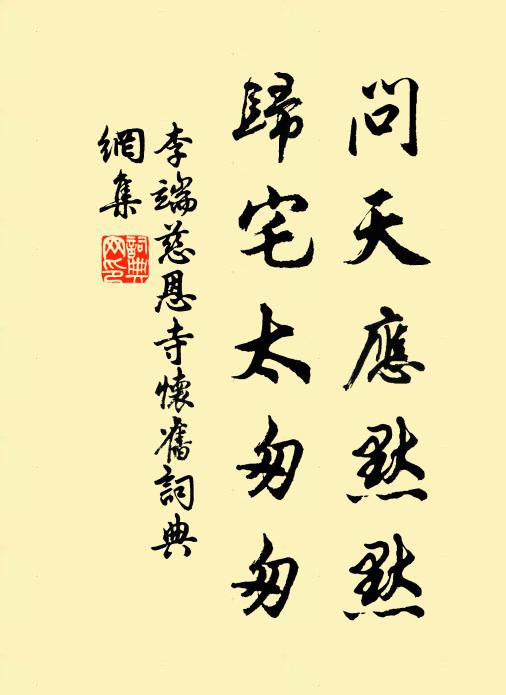 問天應默默
歸宅太匆匆
李端慈恩寺懷舊詞典
網集
詞典
网印